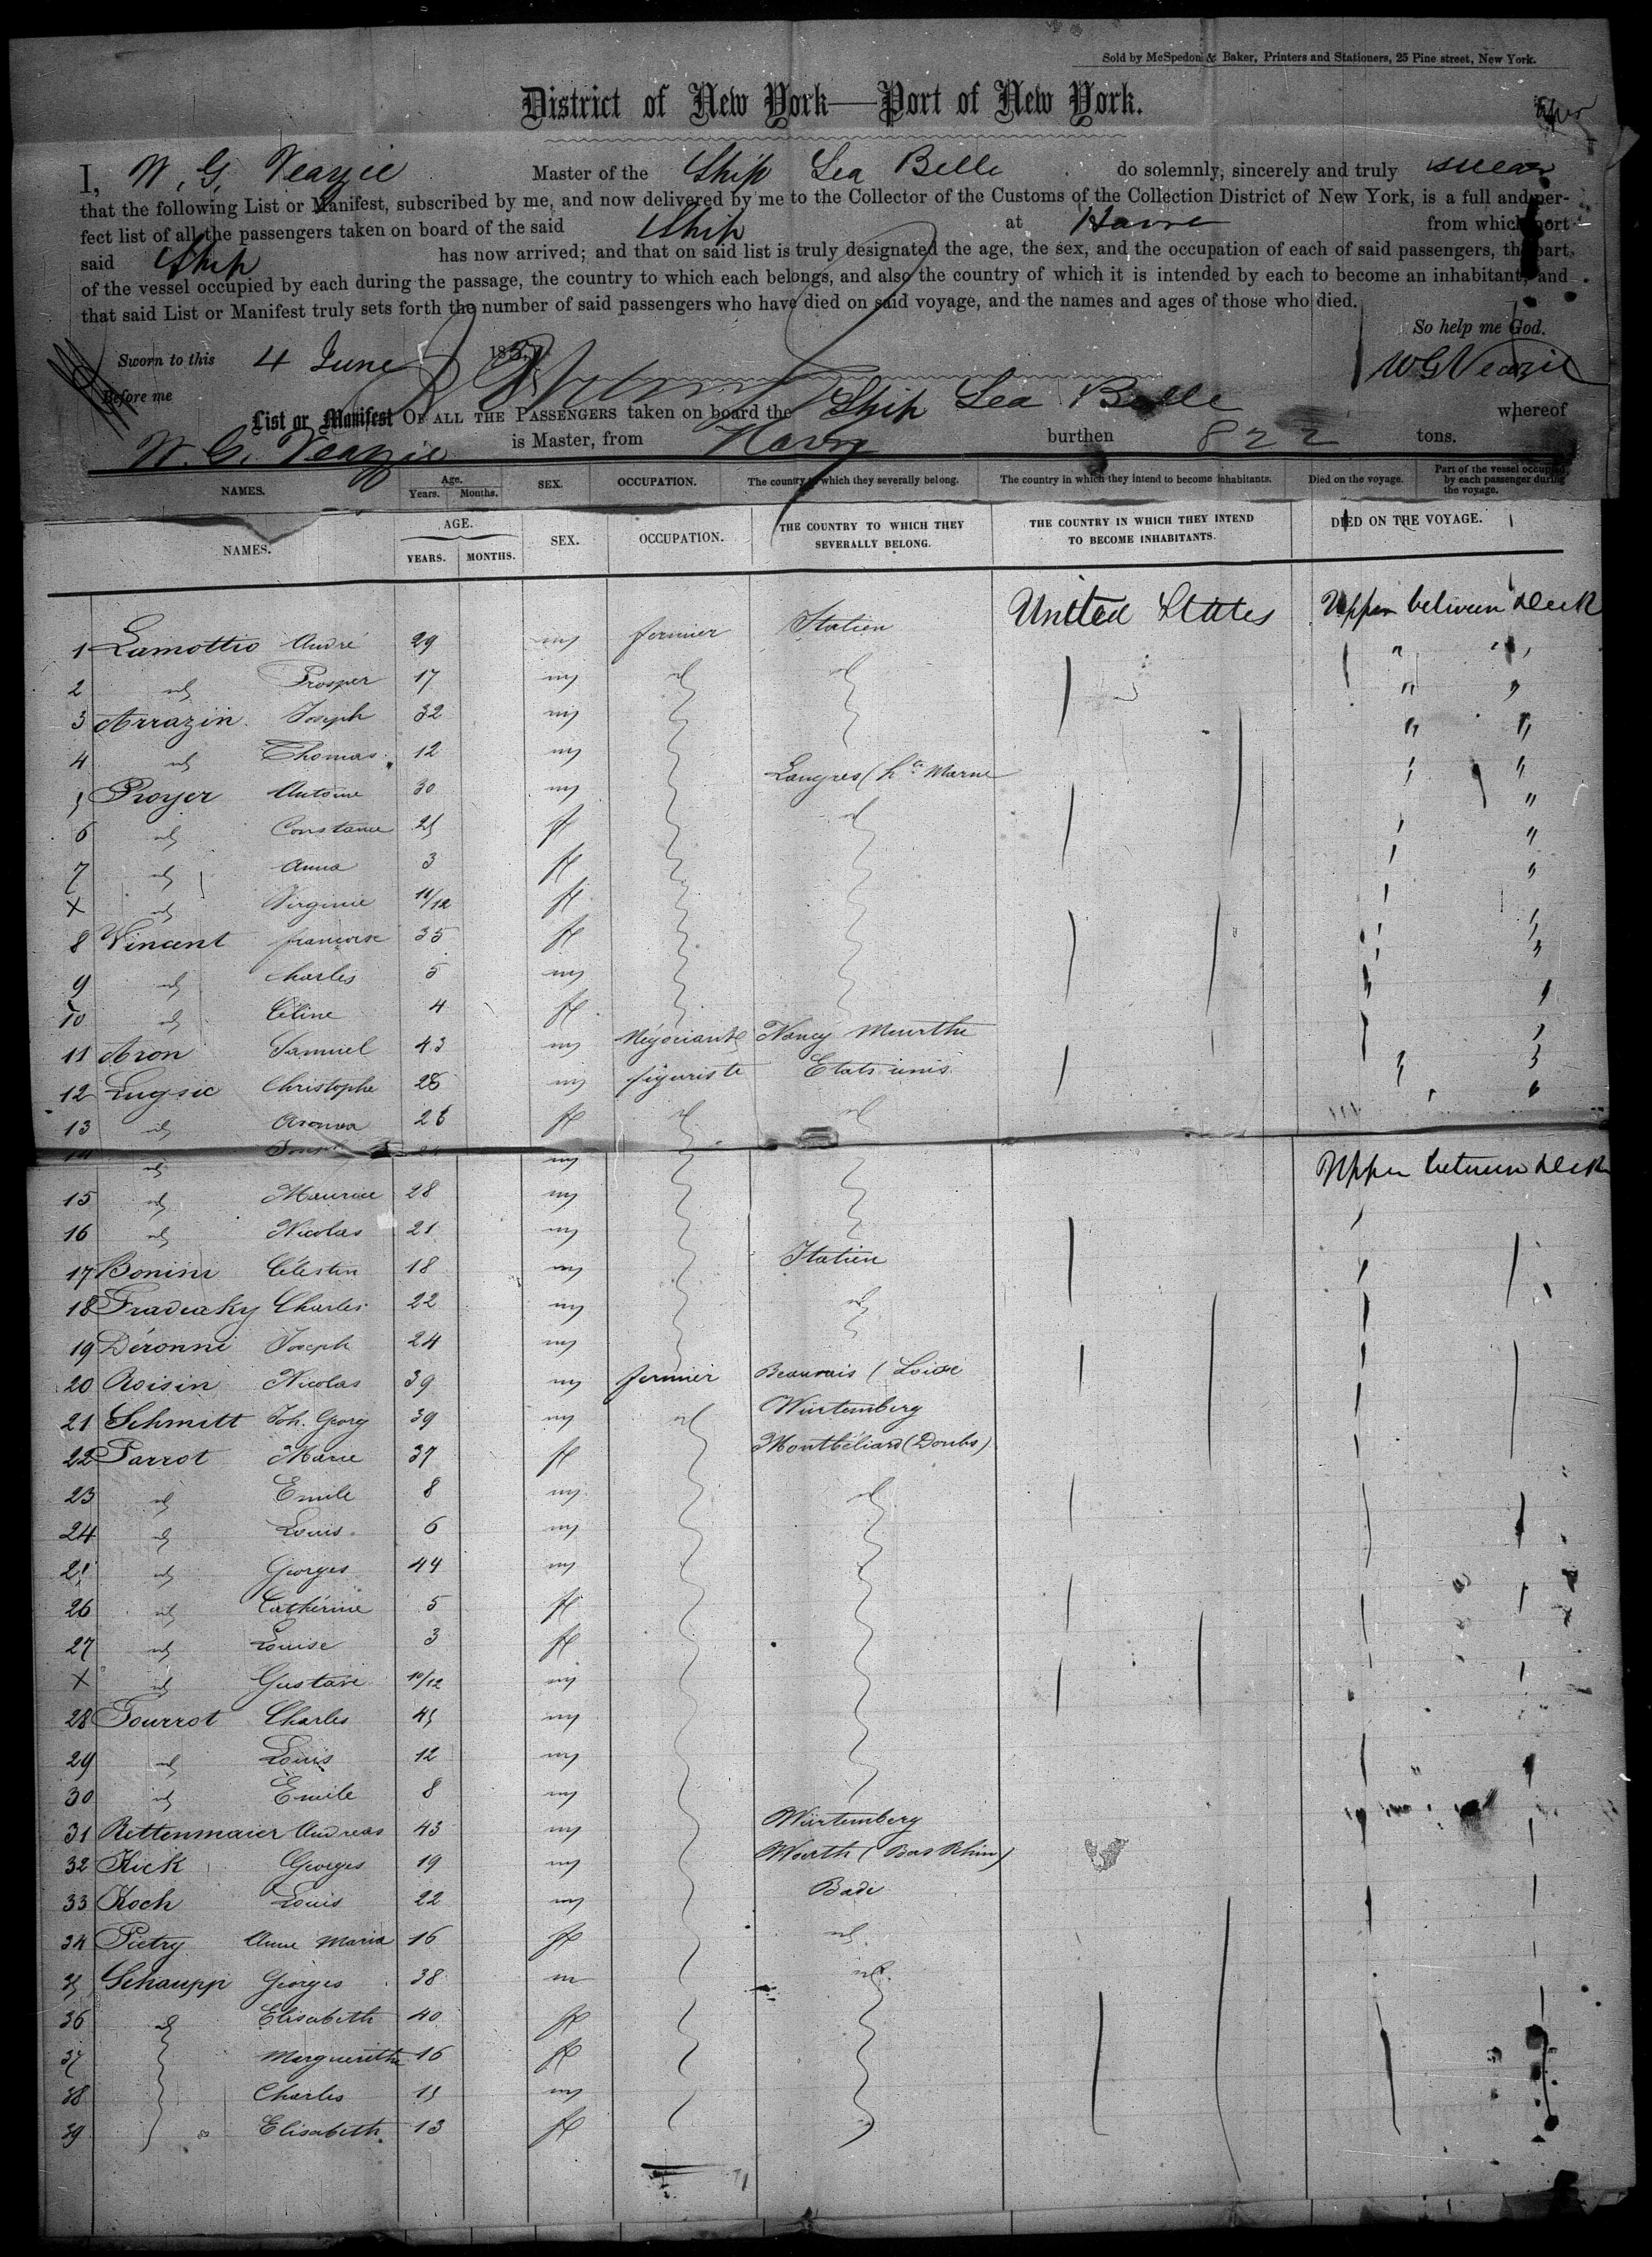 Sold by McSpedon & Baker, Printers and Stationers, 25 Pine street, New York.
District of New York—Port of New York.
I, W. G. Veazie Master of the Ship Sea Belle do solemnly, sincerely and truly swear
that the following List or Manifest, subscribed by me, and now delivered by me to the Collector of the Customs of the Collection District of New York, is a full and per-
fect list of all the passengers taken on board of the said Ship at Havre from which port
said Ship has now arrived; and that on said list is truly designated the age, the sex, and the occupation of each of said passengers, the part
of the vessel occupied by each during the passage, the country to which each belongs, and also the country of which it is intended by each to become an inhabitant; and
that said List or Manifest truly sets forth the number of said passengers who have died on said voyage, and the names and ages of those who died.
So help me God.
Sworn to this 4 June 185
W G Veazie
Before me
List or Manifest OF ALL THE PASSENGERS taken on board the Ship Sea Belle whereof
W. G. Veazie is Master, from Havre burthen 822 tons.
NAMES. Age. Years. Months. SEX. OCCUPATION. The country to which they severally belong. The country in which they intend to become inhabitants. Died on the voyage. Part of the vessel occupied by each passenger during the voyage.
NAMES. AGE. YEARS. MONTHS. SEX. OCCUPATION. THE COUNTRY TO WHICH THEY SEVERALLY BELONG. THE COUNTRY IN WHICH THEY INTEND TO BECOME INHABITANTS. DIED ON THE VOYAGE.
1 Lamottio André 29 m fermier Italien United States Upper between deck
2 id Prosper 17 m id id " "
3 Arrazin Joseph 32 m " "
4 id Thomas 12 m " "
5 Proyer Antoine 30 m Langres (hte Marne " "
6 id Constance 25 f id "
7 id Anna 3 f "
X id Virginie 11/12 f "
8 Vincent françoise 35 f
9 id Charles 5 m
10 id Céline 4 f
11 Aron Samuel 43 m Négociant Nancy Meurthe
12 Lugsic Christophe 28 m figuriste Etats unis
13 id 28 f id id
14 id Joseph 24 m
15 id Maurice 28 m Upper between deck
16 id Nicolas 21 m
17 Bonini Célestin 18 m Italien
18 Fradiaky Charles 22 m id
19 Déronni Joseph 24 m
20 Roisin Nicolas 39 m fermier Beauvais (Loise
21 Schmitt Joh. Georg 39 m id Würtemberg
22 Parrot Marie 37 f Montbéliard (Doubs)
23 id Emile 8 m id
24 id Louis 6 m
25 id Georges 44 m
26 id Cathérine 5 f
27 id Louise 3 f
X id Gustave 10/12 m
28 Tourrot Charles 45 m
29 id Louis 12 m
30 id Emile 8 m
31 Rettenmaier Andreas 43 m Würtemberg
32 Kick Georges 19 m Woerth (Bas Rhin)
33 Koch Louis 22 m Bade
34 Pietry Anne Maria 16 f id
35 Schaupp Georges 38 m id
36 id Elisabeth 40 f
37 Marguerithe 16 f
38 Charles 15 m
39 Elisabeth 13 f